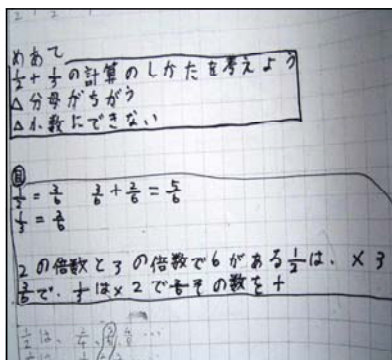 めあて
1/2 + 1/3 の計算のしかたを考えよう
△ 分母がちがう
△ 小数にできない
1/2 = 3/6  3/6 + 2/6 = 5/6
1/3 = 2/6
2の倍数と3の倍数で6がある1/2は、×3
3/6で、1/3は×2でその数を+
1/2は、2/4、3/6 4/8 …